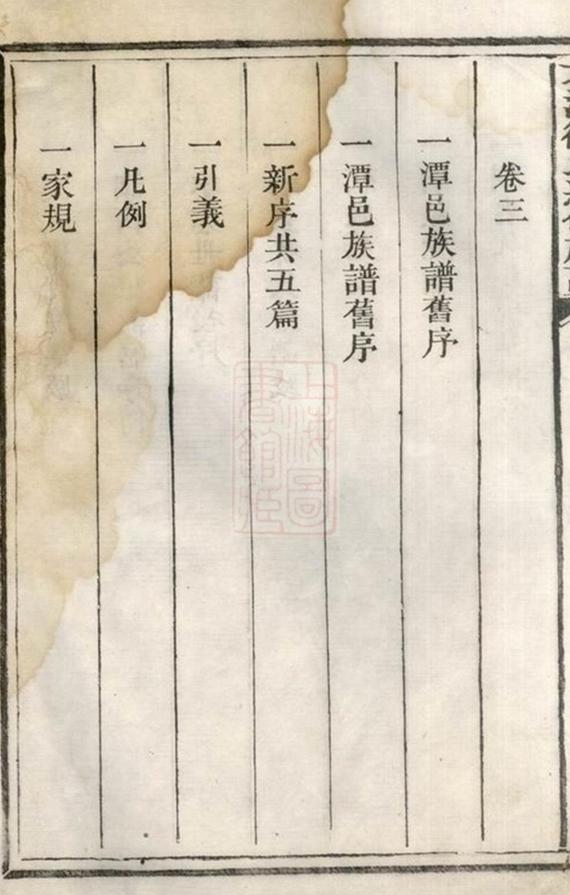 卷三
一潭邑族譜舊序
一潭邑族譜舊序
一新序共五篇
一引義
一凡例
一家規
上海圖書館藏